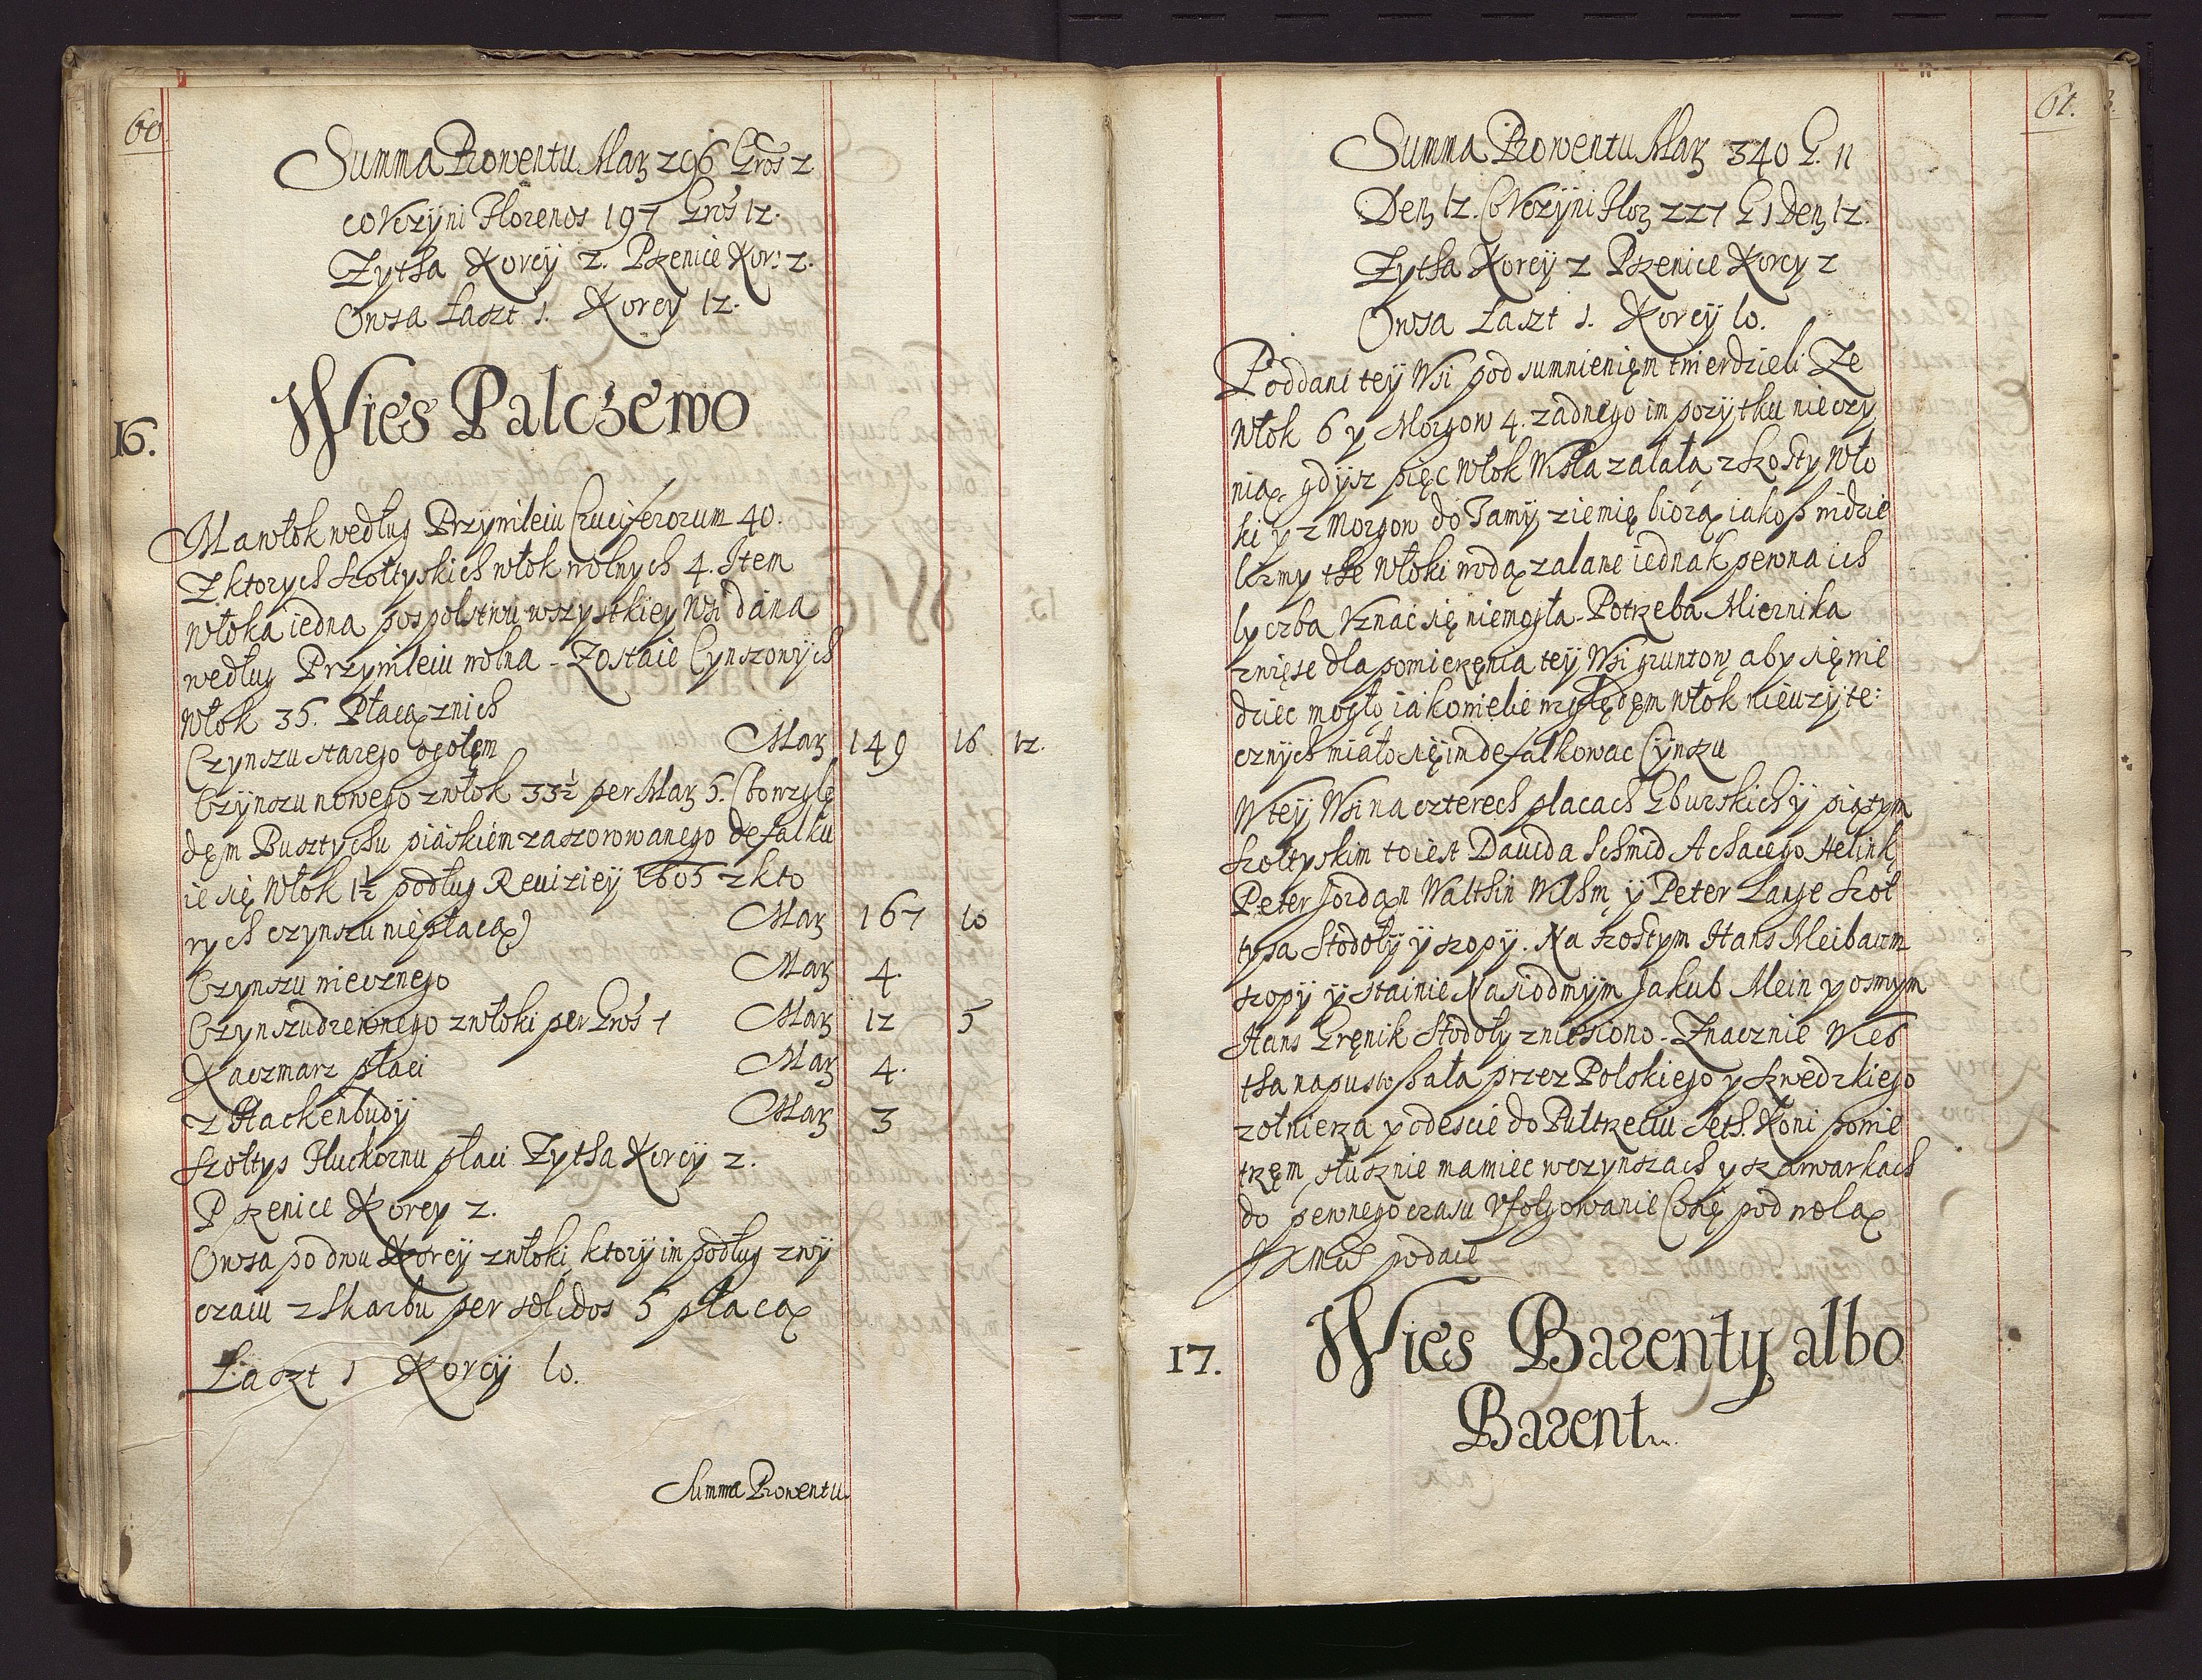 60
Summa Prowentu Mar 296 Gros 2
co Vczyni Florenos 197 Gros 12.
Zytha Korcy 2. Pszenice Kor: 2.
Owsa Łaszt 1. Korcy 12.
16.
Wies Palczewo
Ma włok według Przywileiu Cruciferorum 40.
Z ktorych szołtyskich włok wolnych 4. Item
włoka iedna pospolstwu wszystkiey Wsi dana
według Przywileiu wolna - Zostaie Cynszowych
Włok 35. Płacą z nich
Czynszu starego ogołem Mar 149 16. 12.
Czynszu nowego z włok 33½ per Mar 5. (bo wzglę
dem Pusztychu piaskiem zaszorowanego defalku
ie się Włok 1½ podług Reuiziey 1605 z kto
rych czynszu nie płacą) Mar 167 10
Czynszu wiecznego Mar 4.
Czynszu drewnego z włoki per Gros 7 Mar 12 5
Kaczmarz płaci Mar 4.
z Hackenbudy Mar 3
Szołtys Fluckornu płaci Zytha Korcy 2.
Pszenice Korcy 2.
Owsa po dwu Korcy z włoki, ktory im podług zwy
czaiu z Skarbu per solidos 5 płacą
Łaszt 1 Korcy 10.
Summa Prowentu
61.
Summa Prowentu Mar 340 G. 11
Den 12. Co Vczyni Flor 227 G 1 Den 12.
Zytha Korcy 2 Pszenice Korcy 2
Owsa Łaszt 1. Korcy 10.
Poddani tey Wsi pod sumnieniem twierdzieli Ze
Włok 6 y Morgow 4. zadnego im pozytku nie czy
nią, gdysz pięc Włok Wisła zalała, z szosty Wło
ki y z Morgow do Tamy ziemię biorą iakoß widzie
lizmy the Włoki wodą zalane iednak pewna ich
lyczba Vznac się niemogła - Potrzeba Miernika
zwięse dla pomierzenia tey Wsi gruntow aby się wie
dziec mogło iako wiele względem włok nieuzyte:
cznych miało się im defalkowac Cynszu
W tey Wsi na czterech placach Gburskich y piątym
szołtyskim to iest Dauida Schmid Achacego Helink
Peter Jordan Walthin Wilhm y Peter Lange Szoł
tysa Stodoły y szopy. Na szostym Hans Meibaum
szopy y stainie Na siodmym Jakub Mein y osmym
Hans Grenik Stodoły zniesiono - Znacznie Wies
tha napustoßała przez Polskiego y Szwedzkiego
zołnierza y odescie do Pultrzeciu Seth. Koni powie
trzem, słusznie ma miec w czynszach y szarwarkach
do pewnego czasu Vfolgowanie Co się pod wolą
JKMci podaie
17.
Wies Barenty albo
Barent